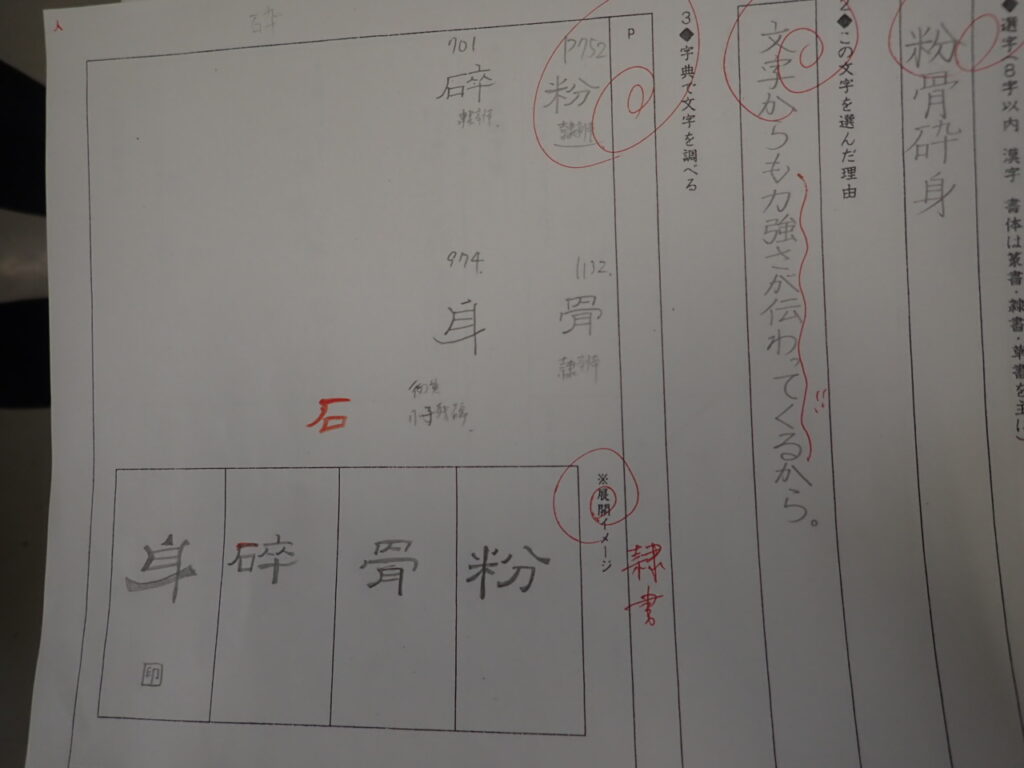 ◆選字(8字以内 漢字 書体は篆書・隷書・草書を主に)
粉骨砕身
2◆この文字を選んだ理由
文字からも力強さが伝わってくるから。
3◆字典で文字を調べる
P
P752
粉
隷辨
1132.
骨
隷辨
701
碎
隷辨
974.
身
石
隷書
※展開イメージ
粉
骨
碎
身
印